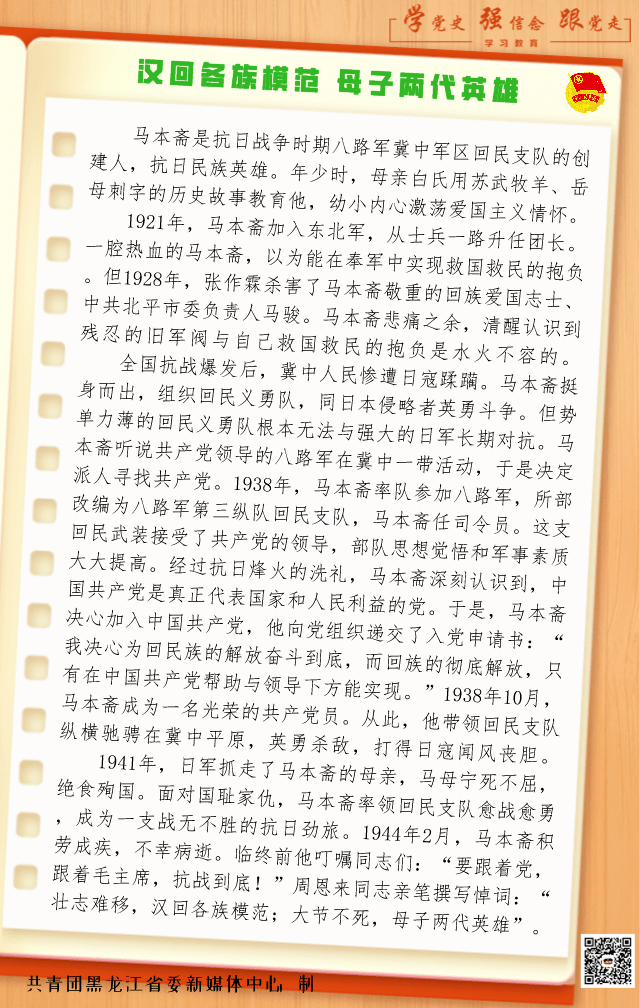 学党史 强信念 跟党走
学习教育
汉回各族模范 母子两代英雄
马本斋是抗日战争时期八路军冀中军区回民支队的创
建人，抗日民族英雄。年少时，母亲白氏用苏武牧羊、岳
母刺字的历史故事教育他，幼小内心激荡爱国主义情怀。
1921年，马本斋加入东北军，从士兵一路升任团长。
一腔热血的马本斋，以为能在奉军中实现救国救民的抱负
。但1928年，张作霖杀害了马本斋敬重的回族爱国志士、
中共北平市委负责人马骏。马本斋悲痛之余，清醒认识到
残忍的旧军阀与自己救国救民的抱负是水火不容的。
全国抗战爆发后，冀中人民惨遭日寇蹂躏。马本斋挺
身而出，组织回民义勇队，同日本侵略者英勇斗争。但势
单力薄的回民义勇队根本无法与强大的日军长期对抗。马
本斋听说共产党领导的八路军在冀中一带活动，于是决定
派人寻找共产党。1938年，马本斋率队参加八路军，所部
改编为八路军第三纵队回民支队，马本斋任司令员。这支
回民武装接受了共产党的领导，部队思想觉悟和军事素质
大大提高。经过抗日烽火的洗礼，马本斋深刻认识到，中
国共产党是真正代表国家和人民利益的党。于是，马本斋
决心加入中国共产党，他向党组织递交了入党申请书：“
我决心为回民族的解放奋斗到底，而回族的彻底解放，只
有在中国共产党帮助与领导下方能实现。”1938年10月，
马本斋成为一名光荣的共产党员。从此，他带领回民支队
纵横驰骋在冀中平原，英勇杀敌，打得日寇闻风丧胆。
1941年，日军抓走了马本斋的母亲，马母宁死不屈，
绝食殉国。面对国耻家仇，马本斋率领回民支队愈战愈勇
，成为一支战无不胜的抗日劲旅。1944年2月，马本斋积
劳成疾，不幸病逝。临终前他叮嘱同志们：“要跟着党，
跟着毛主席，抗战到底！”周恩来同志亲笔撰写悼词：“
壮志难移，汉回各族模范；大节不死，母子两代英雄”。
共青团黑龙江省委新媒体中心 制